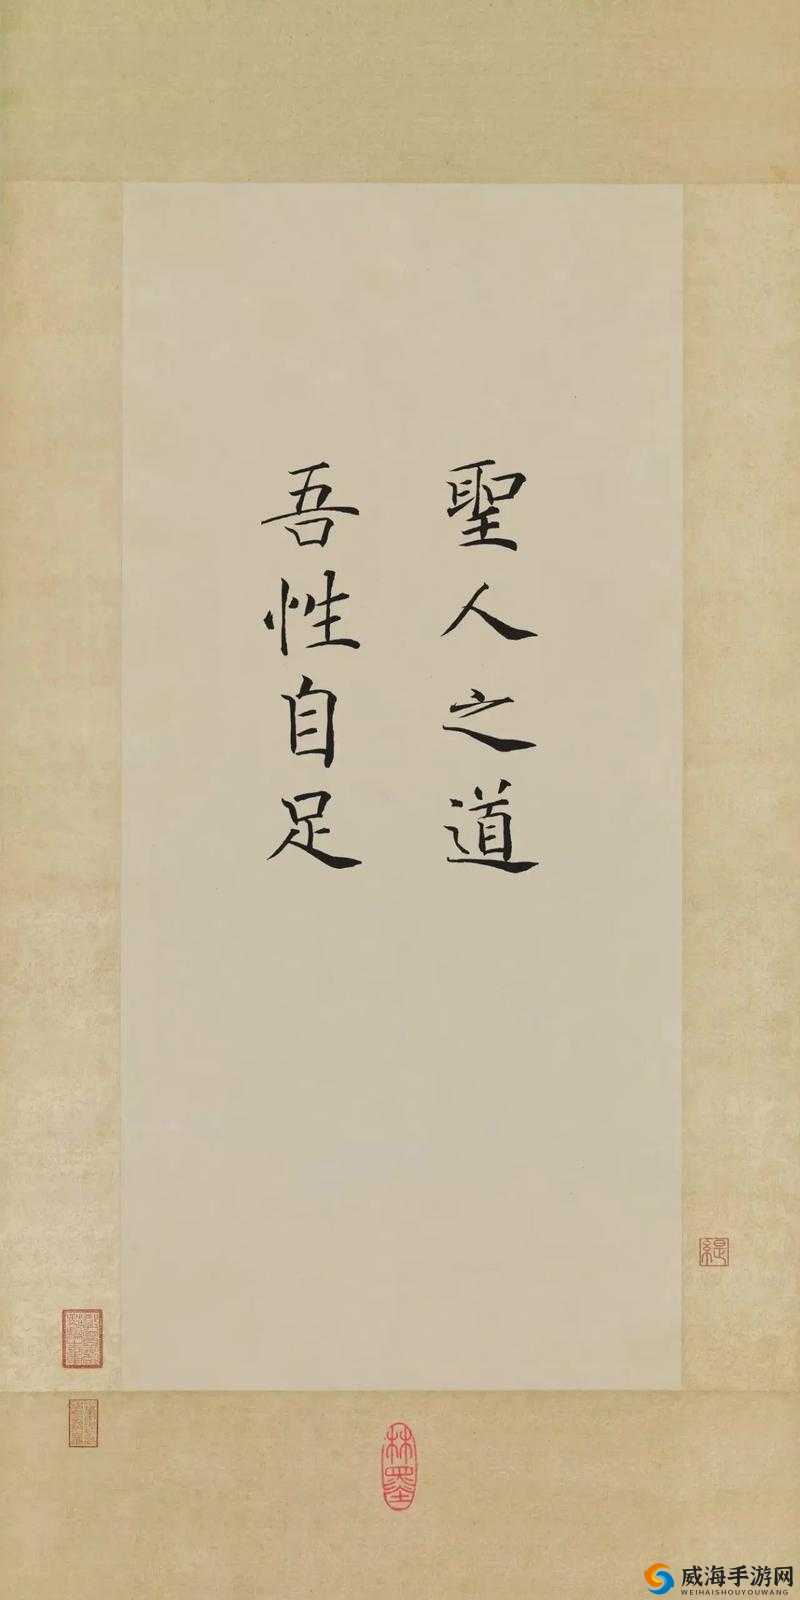 聖人之道
吾性自足
緹
林墨
威海手游网
WEIHAISHOUYOUWANG